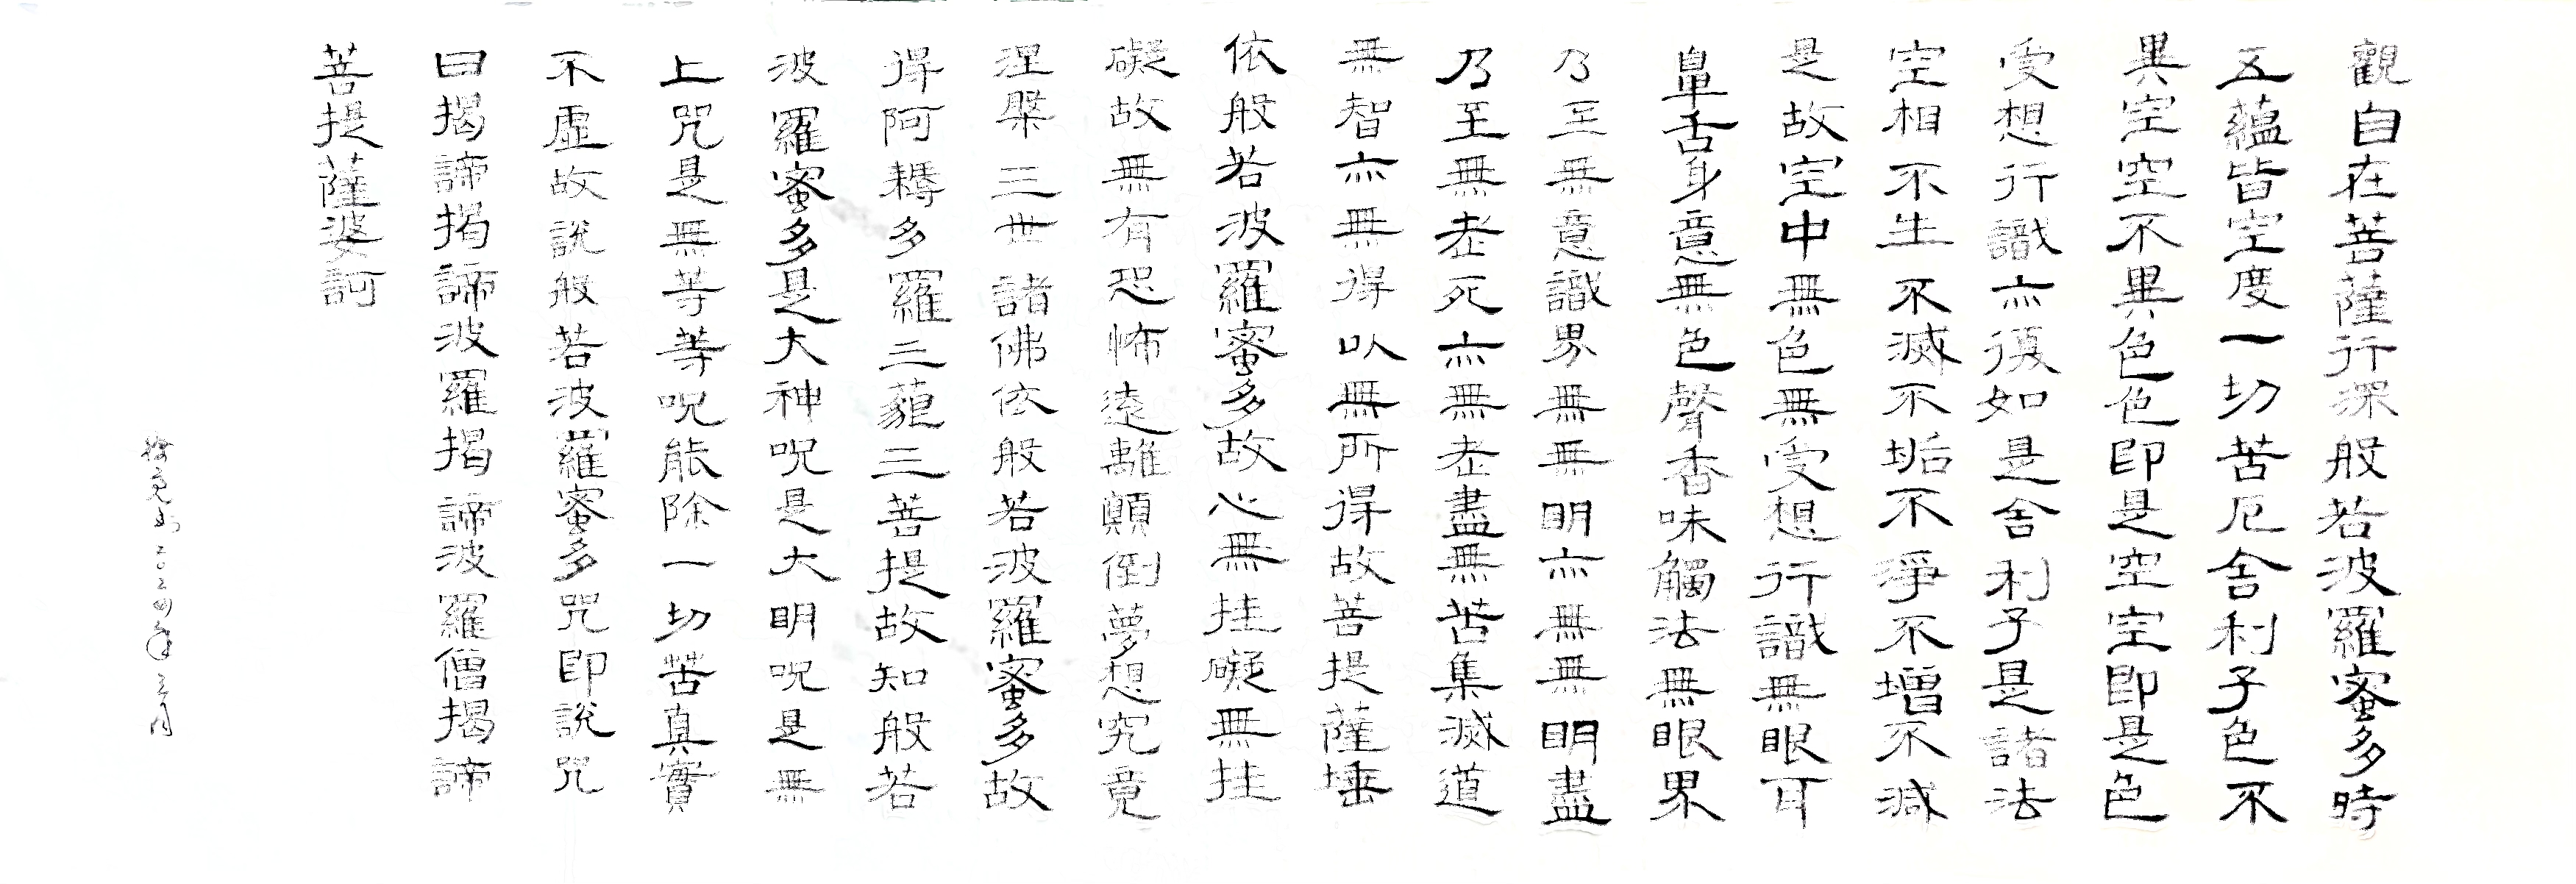 觀自在菩薩行深般若波羅蜜多時
五蘊皆空度一切苦厄舍利子色不
異空空不異色色即是空空即是色
受想行識亦復如是舍利子是諸法
空相不生不滅不垢不淨不增不減
是故空中無色無受想行識無眼耳
鼻舌身意無色聲香味觸法無眼界
乃至無意識界無無明亦無無明盡
乃至無老死亦無老盡無苦集滅道
無智亦無得以無所得故菩提薩埵
依般若波羅蜜多故心無挂礙無挂
礙故無有恐怖遠離顛倒夢想究竟
涅槃三世諸佛依般若波羅蜜多故
得阿耨多羅三藐三菩提故知般若
波羅蜜多是大神呪是大明呪是無
上咒是無等等呪能除一切苦真實
不虛故說般若波羅蜜多咒即說咒
曰揭諦揭諦波羅揭諦波羅僧揭諦
菩提薩婆訶
二〇二四年三月